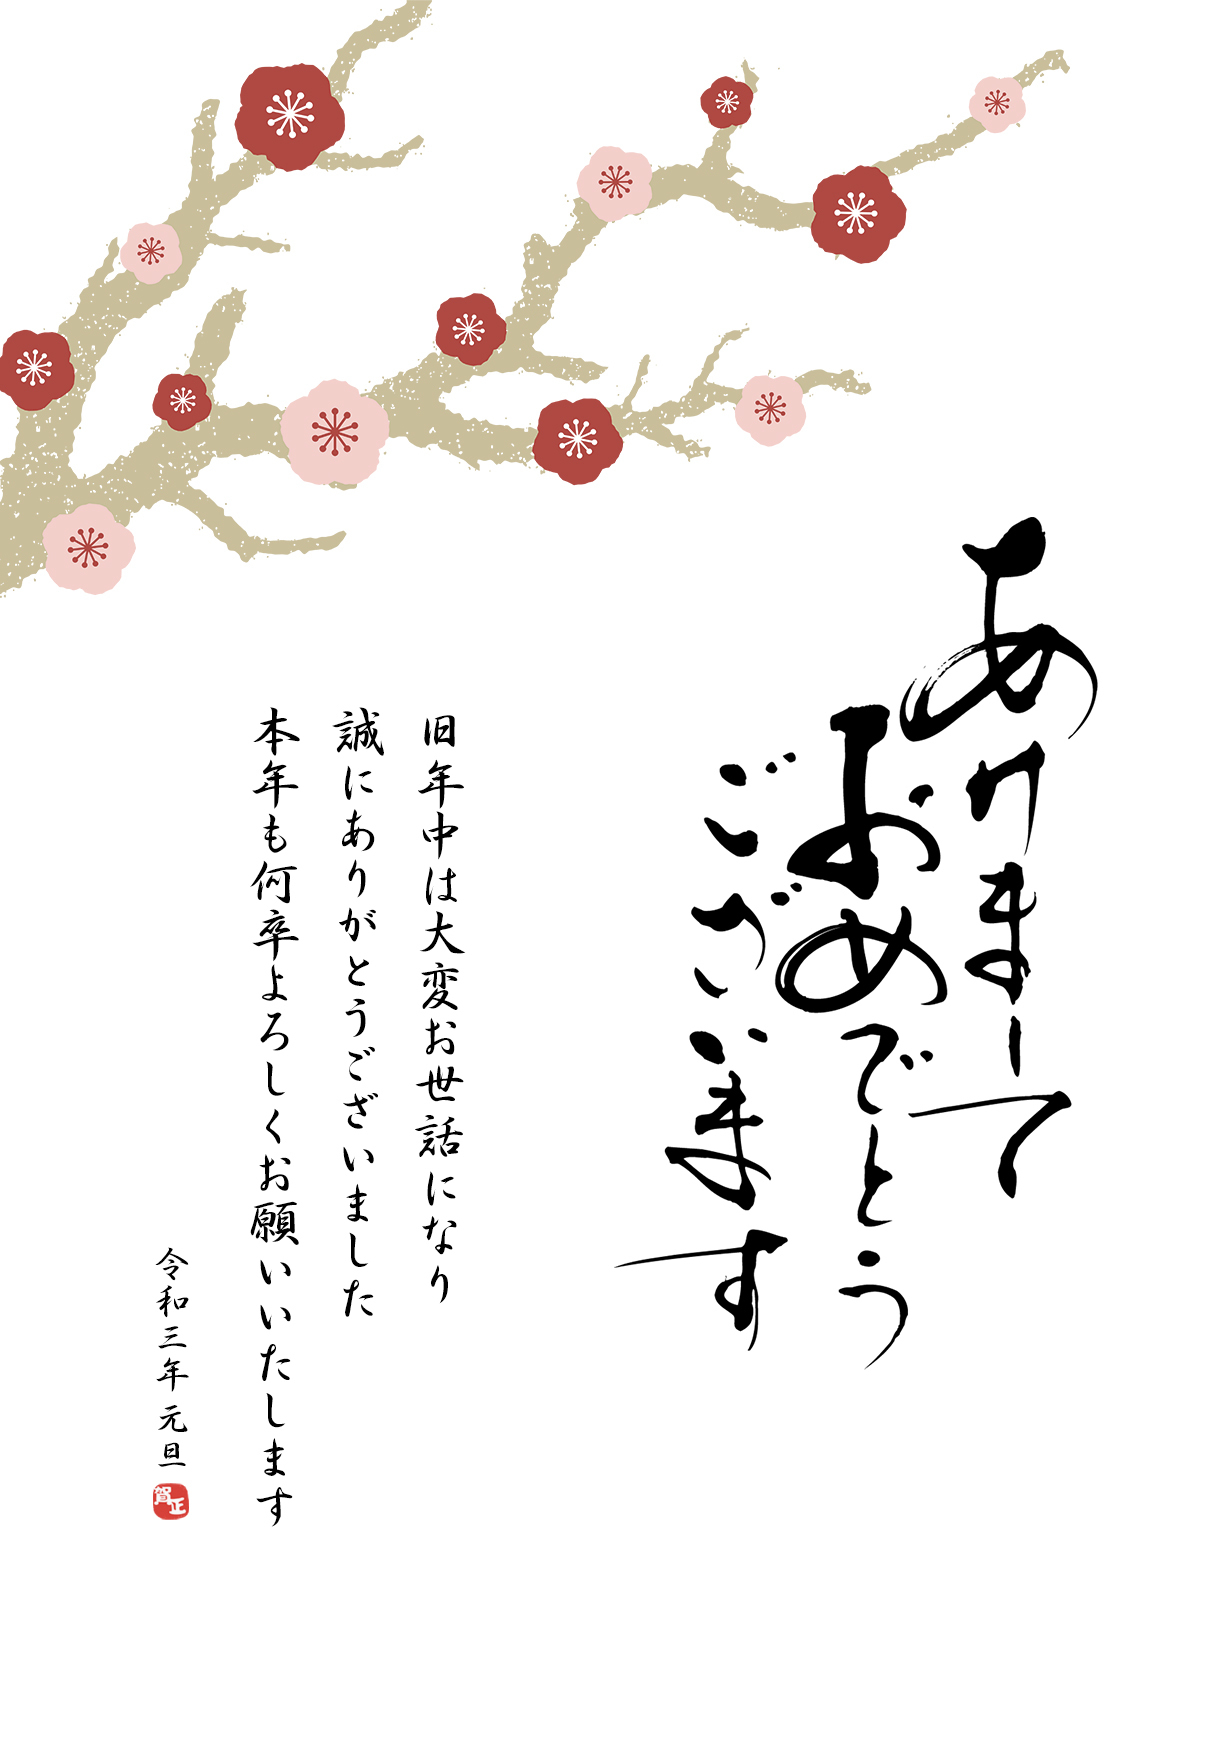 あけまして
おめでとう
ございます
旧年中は大変お世話になり
誠にありがとうございました
本年も何卒よろしくお願いいたします
令和三年 元旦
賀正